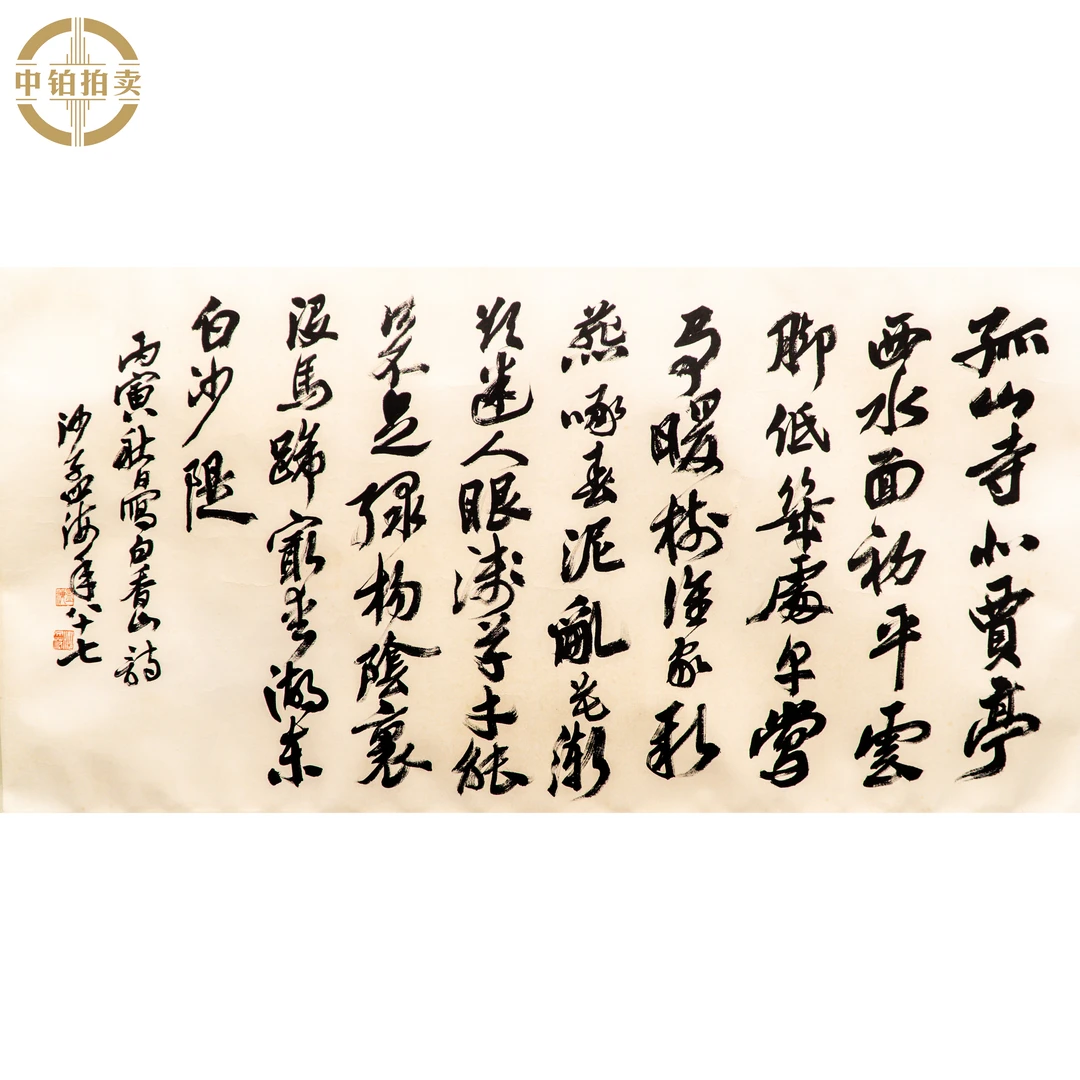 中铂拍卖
孤山寺北賈亭
西水面初平雲
脚低幾處早鶯
爭暖樹誰家新
燕啄春泥亂花漸
欲迷人眼淺草才能
不足綠楊陰裏
沒馬蹄最愛湖東
白沙堤
丙寅秋日寫白香山詩
沙孟海年八十七